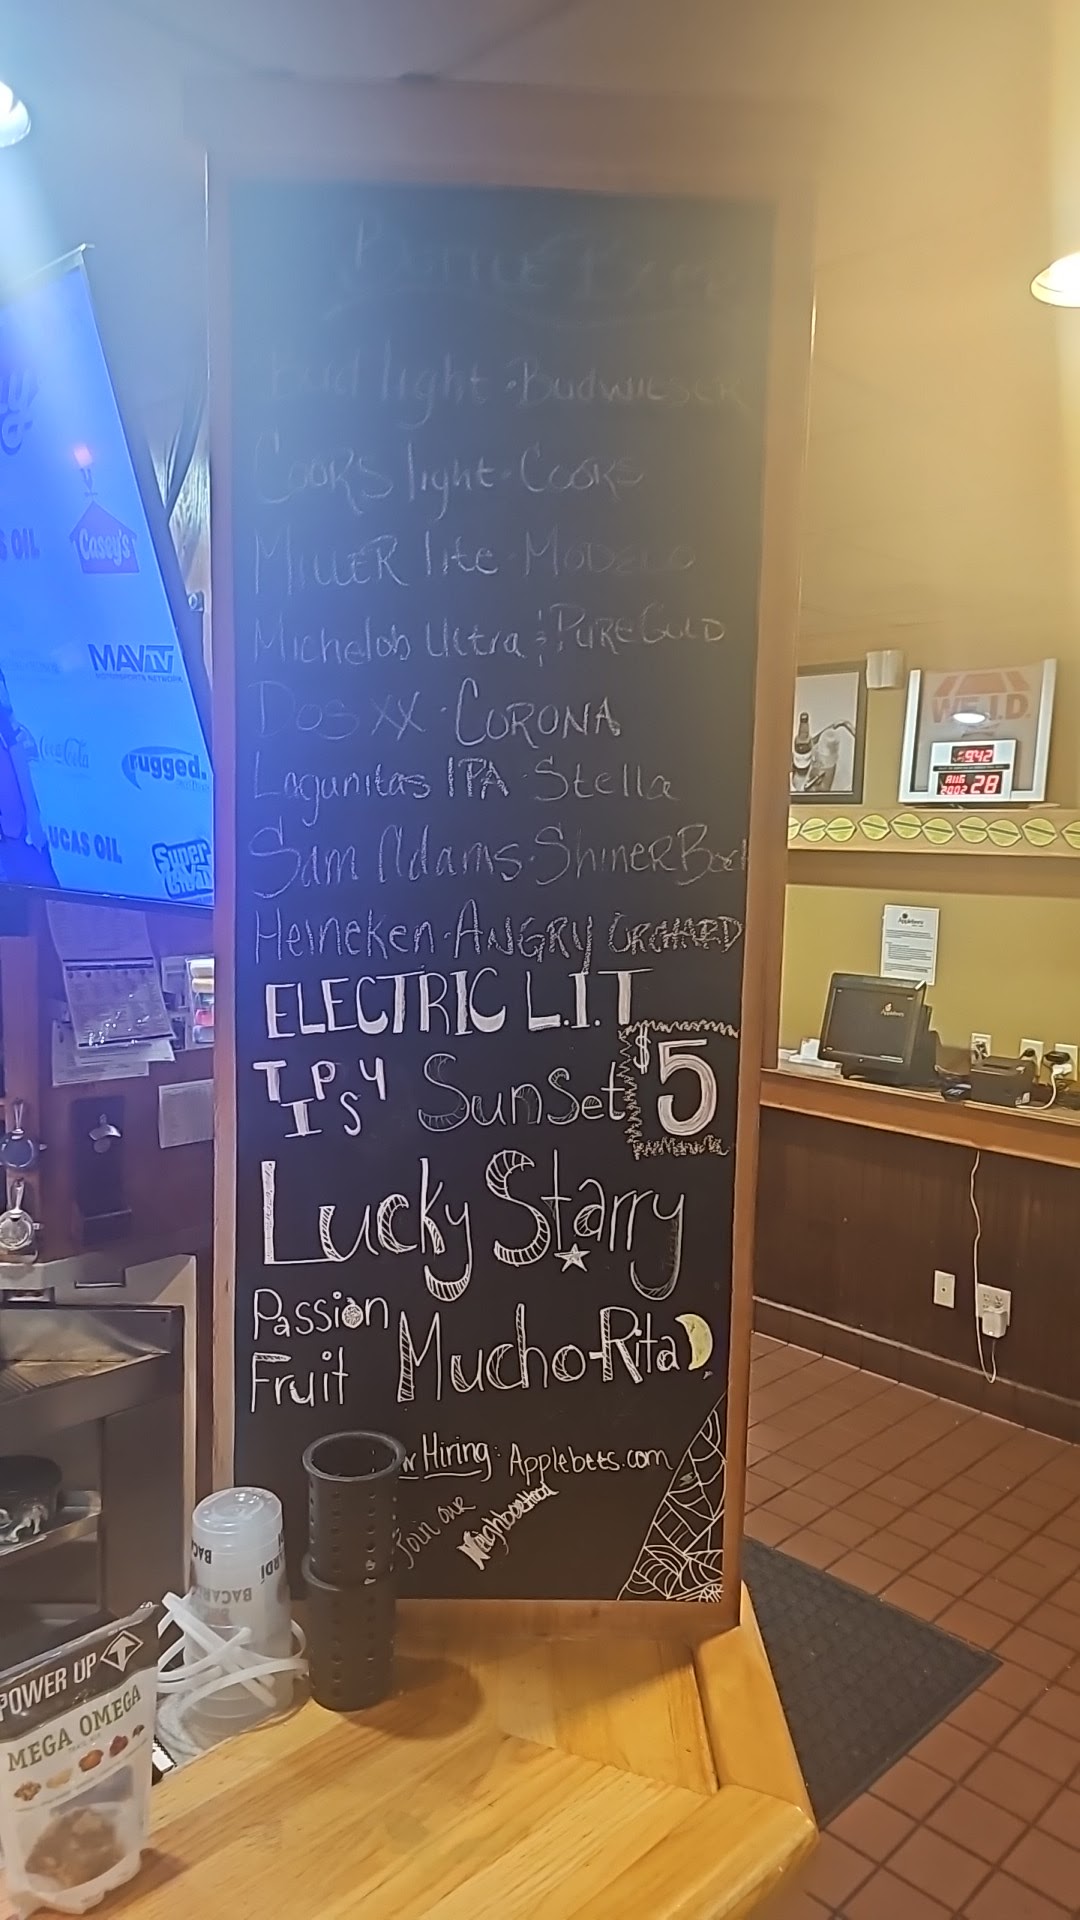 BOTTLE BEER
Bud light · BudwieSER
COORS light · COORS
MILLER lite · MODELO
Michelob Ultra & PURE GOLD
DOS XX · CORONA
Lagunitas IPA · Stella
Sam Adams · SHINER Bock
Heineken · ANGRY ORCHARD
ELECTRIC L.I.T
TIPSY Sunset $5
Lucky Starry
Passion Fruit Mucho-Rita
Hiring: Applebees.com
Join our Neighborhood
S OIL
Casey's
MAVTV
MOTORSPORTS NETWORK
Coca-Cola
rugged.
LUCAS OIL
Super
WE I.D.
9:42
AUG 28
2002
Applebee's
Applebee's
BACARDÍ
BACARDÍ
POWER UP
MEGA OMEGA